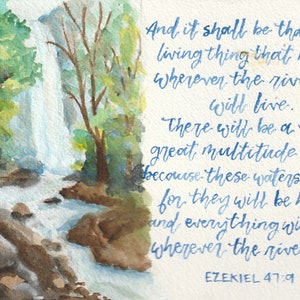 And it shall be tha
living thing that
wherever the riv
will live.
There will be a v
great multitude
because these waters
for they will be h
and everything wi
wherever the rive
EZEKIEL 47:9